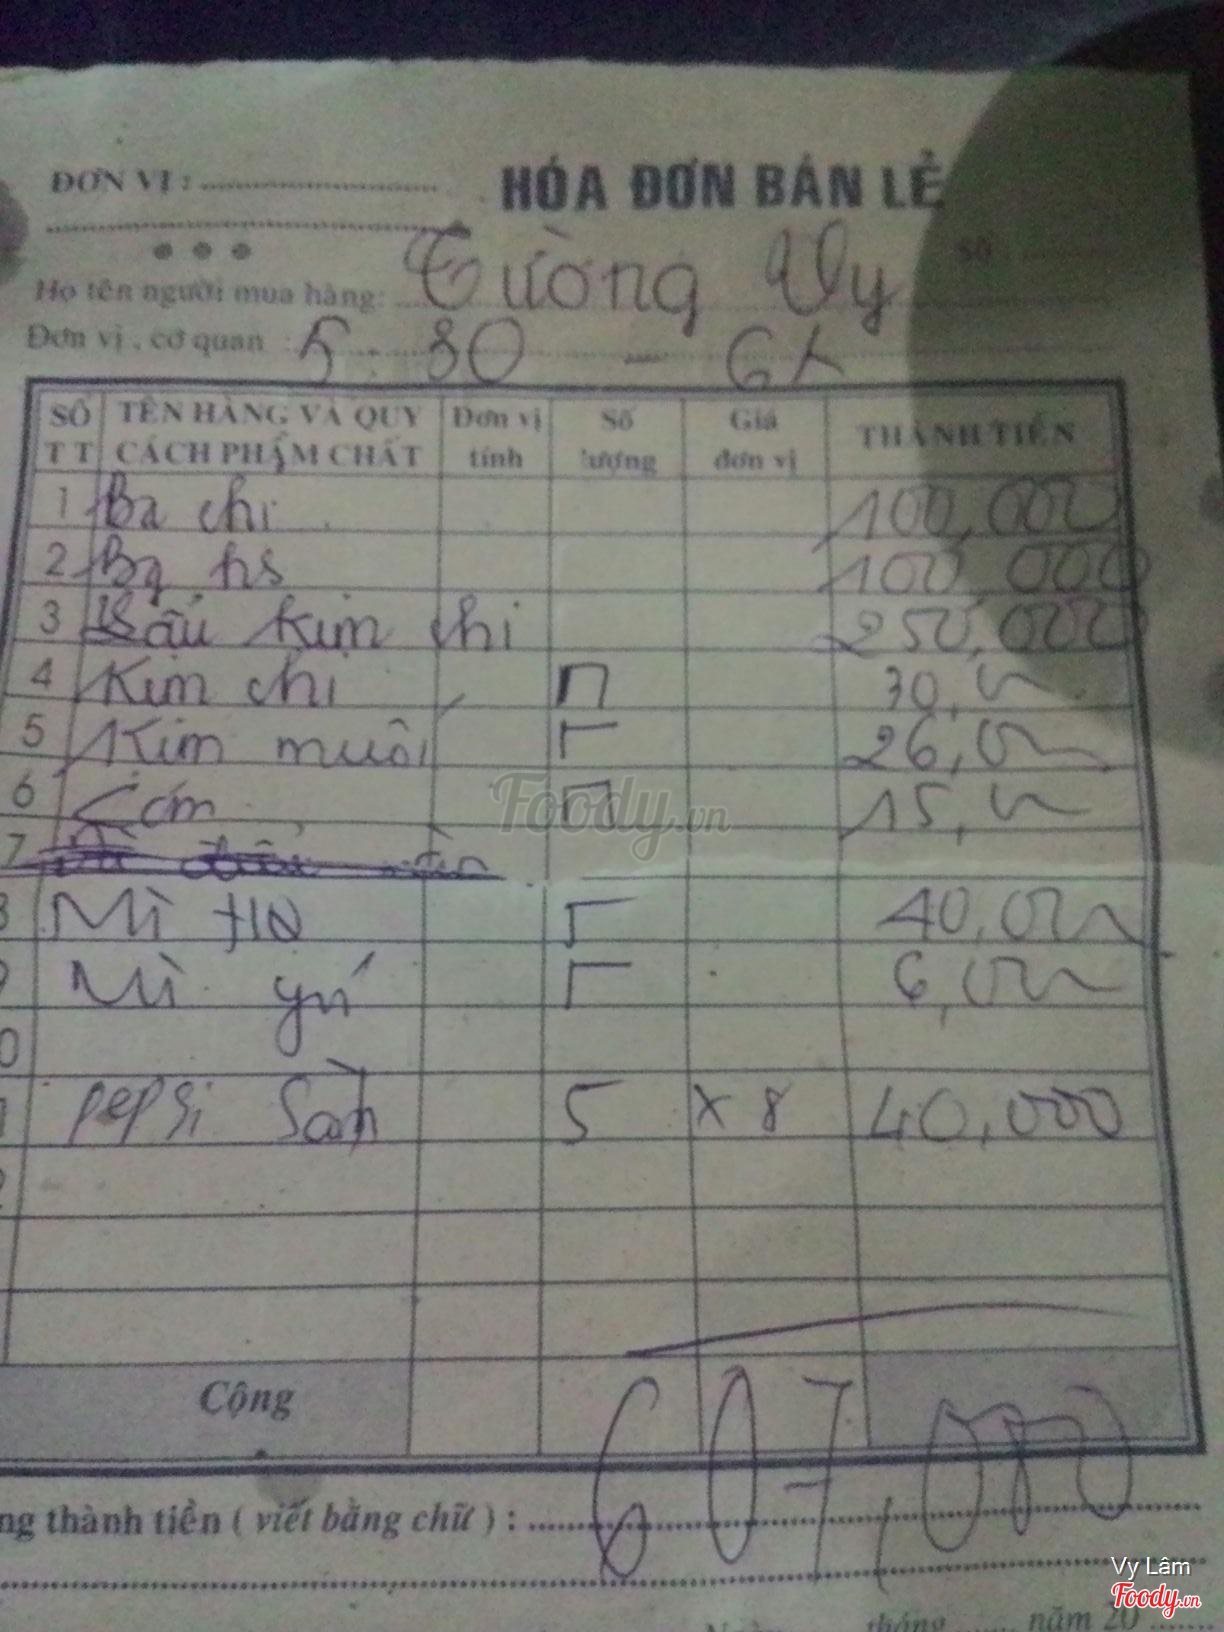 ĐƠN VỊ : HÓA ĐƠN BÁN LẺ
Số
Họ tên người mua hàng: Tường Vy
Đơn vị , cơ quan : 5. 30 - 6h
SỐ TT TÊN HÀNG VÀ QUY CÁCH PHẨM CHẤT Đơn vị tính Số lượng Giá đơn vị THÀNH TIỀN
1 Ba chi 100,000
2 Ba hs 100,000
3 Lẩu kim chi 250,000
4 Kim chi 30,
5 Kim muối 26,
6 Cơm 15,
7
Mì 40,
Mì ý 6,
pepsi 5 x 8 40,000
Cộng 607,000
ng thành tiền ( viết bằng chữ ) :
tháng năm 20
Foody.vn
Vy Lâm
Foody.vn